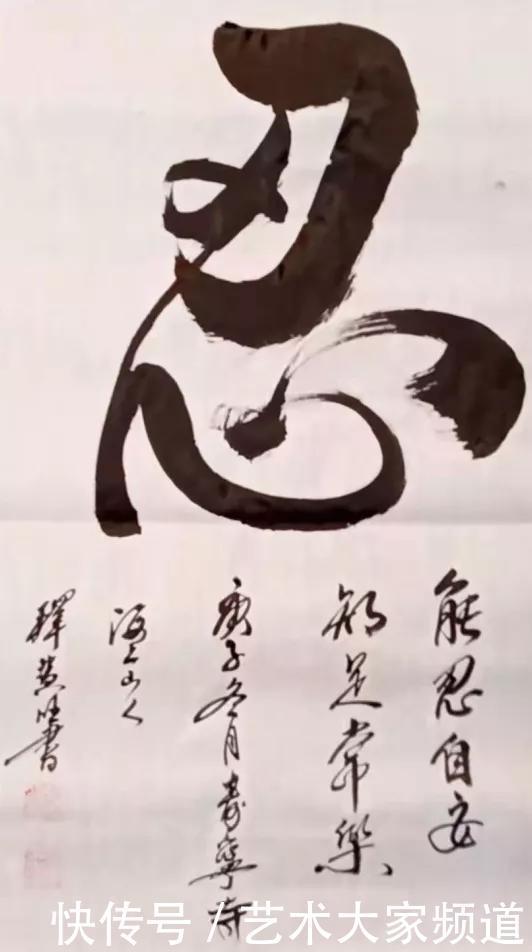 忍
能忍自安
知足常樂
庚子冬月壽寧寺
海上山人
釋慧性書
快传号/艺术大家频道